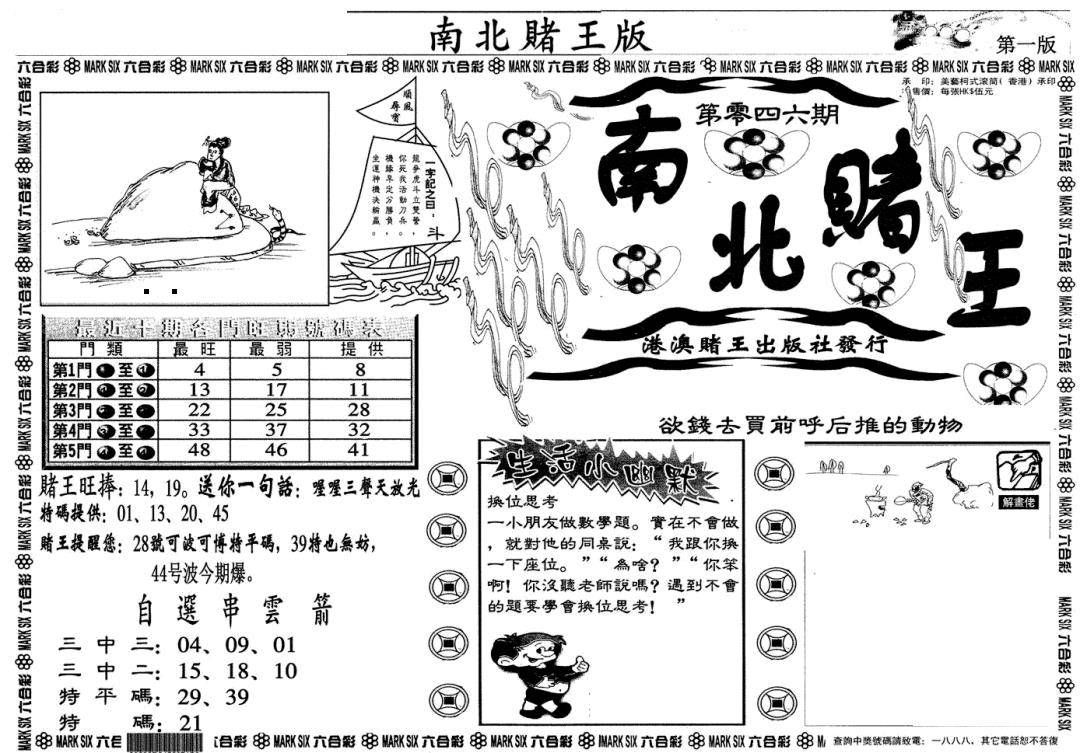 南北賭王版
第一版
六合彩 MARK SIX 六合彩 MARK SIX 六合彩 MARK SIX 六合彩 MARK SIX 六合彩 MARK SIX 六合彩 MARK SIX 六合彩 MARK SIX 六合彩 MARK SIX 六合彩 MARK SIX 六合彩 MARK SIX
承 印：美藝柯式滾筒(香港)承印
售價：每張HK$伍元
順風
尋寶
一字記之曰：斗
龍爭虎斗立雙營，
你死我活動刀兵。
機緣早定分勝負，
坐運神機決輸贏。
第零四六期
南北賭王
港澳賭王出版社發行
最近十期各門旺弱號碼表
門 類 最 旺 最 弱 提 供
第1門 至 4 5 8
第2門 至 13 17 11
第3門 至 22 25 28
第4門 至 33 37 32
第5門 至 48 46 41
賭王旺捧：14，19。送你一句話：喔喔三聲天放光
特碼提供：01、13、20、45
賭王提醒您：28號可波可博特平碼，39特也無妨，
44号波今期爆。
自選串雲箭
三中三：04、09、01
三中二：15、18、10
特平碼：29、39
特 碼：21
生活小幽默
換位思考
一小朋友做數學題。實在不會做
，就對他的同桌説：“我跟你換
一下座位。”“為啥？”“你笨
啊！你沒聽老師説嗎？遇到不會
的題要學會換位思考！”
欲錢去買前呼后推的動物
解畫佬
MARK SIX 六合彩 MARK SIX 六合彩 MARK SIX 六合彩 MARK SIX 六合彩 MARK SIX 六合彩 MARK SIX
查詢中獎號碼請致電：一八八八，其它電話恕不答復